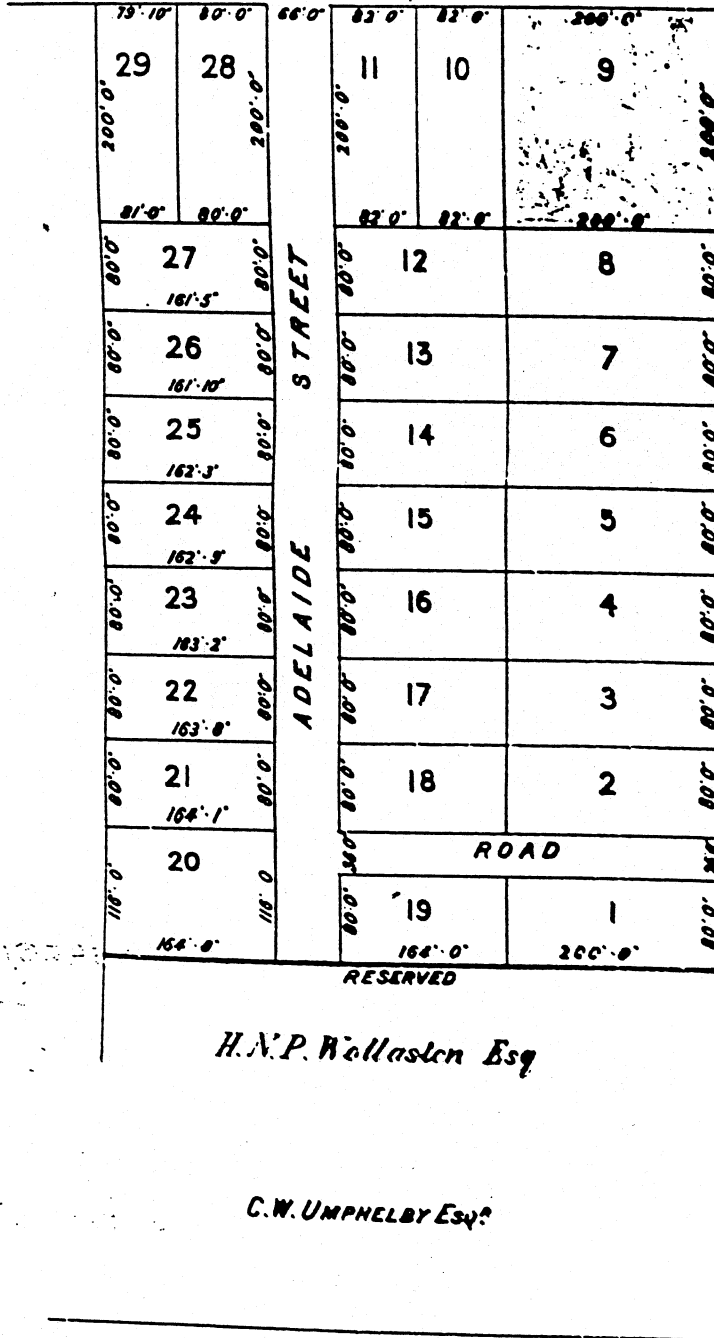 79'·10" 80'·0" 66'0" 82'0" 82'·0" 200'·0"
29 28 11 10 9
200'0" 200'·0" 200'·0" 200'0"
81'·0" 80'·0" 82'0" 82'·0" 200'·0"
80'0" 27 80'·0" 80'·0" 12 8 80'·0"
161'·5"
STREET
80'·0" 26 80'0" 80'·0" 13 7 80'0"
161'·10"
80'·0" 25 80'·0" 80'0" 14 6 80'·0"
162'·3"
80'·0" 24 80'·0" 80'·0" 15 5 80'0"
162'·9"
ADELAIDE
80'·0" 23 80'·0" 80'·0" 16 4 80'·0"
163'·2"
80'·0" 22 80'·0" 80'·0" 17 3 80'0"
163'·8"
80'·0" 21 80'0" 80'0" 18 2 80'·0"
164'·1"
20 36'0" ROAD 36'0"
116'·0" 116'·0 80'·0" 19 1 80'·0"
164'·8" 164'·0" 200'·0"
RESERVED
H.N.P. Wollaston Esq
C.W. UMPHELBY ESQR